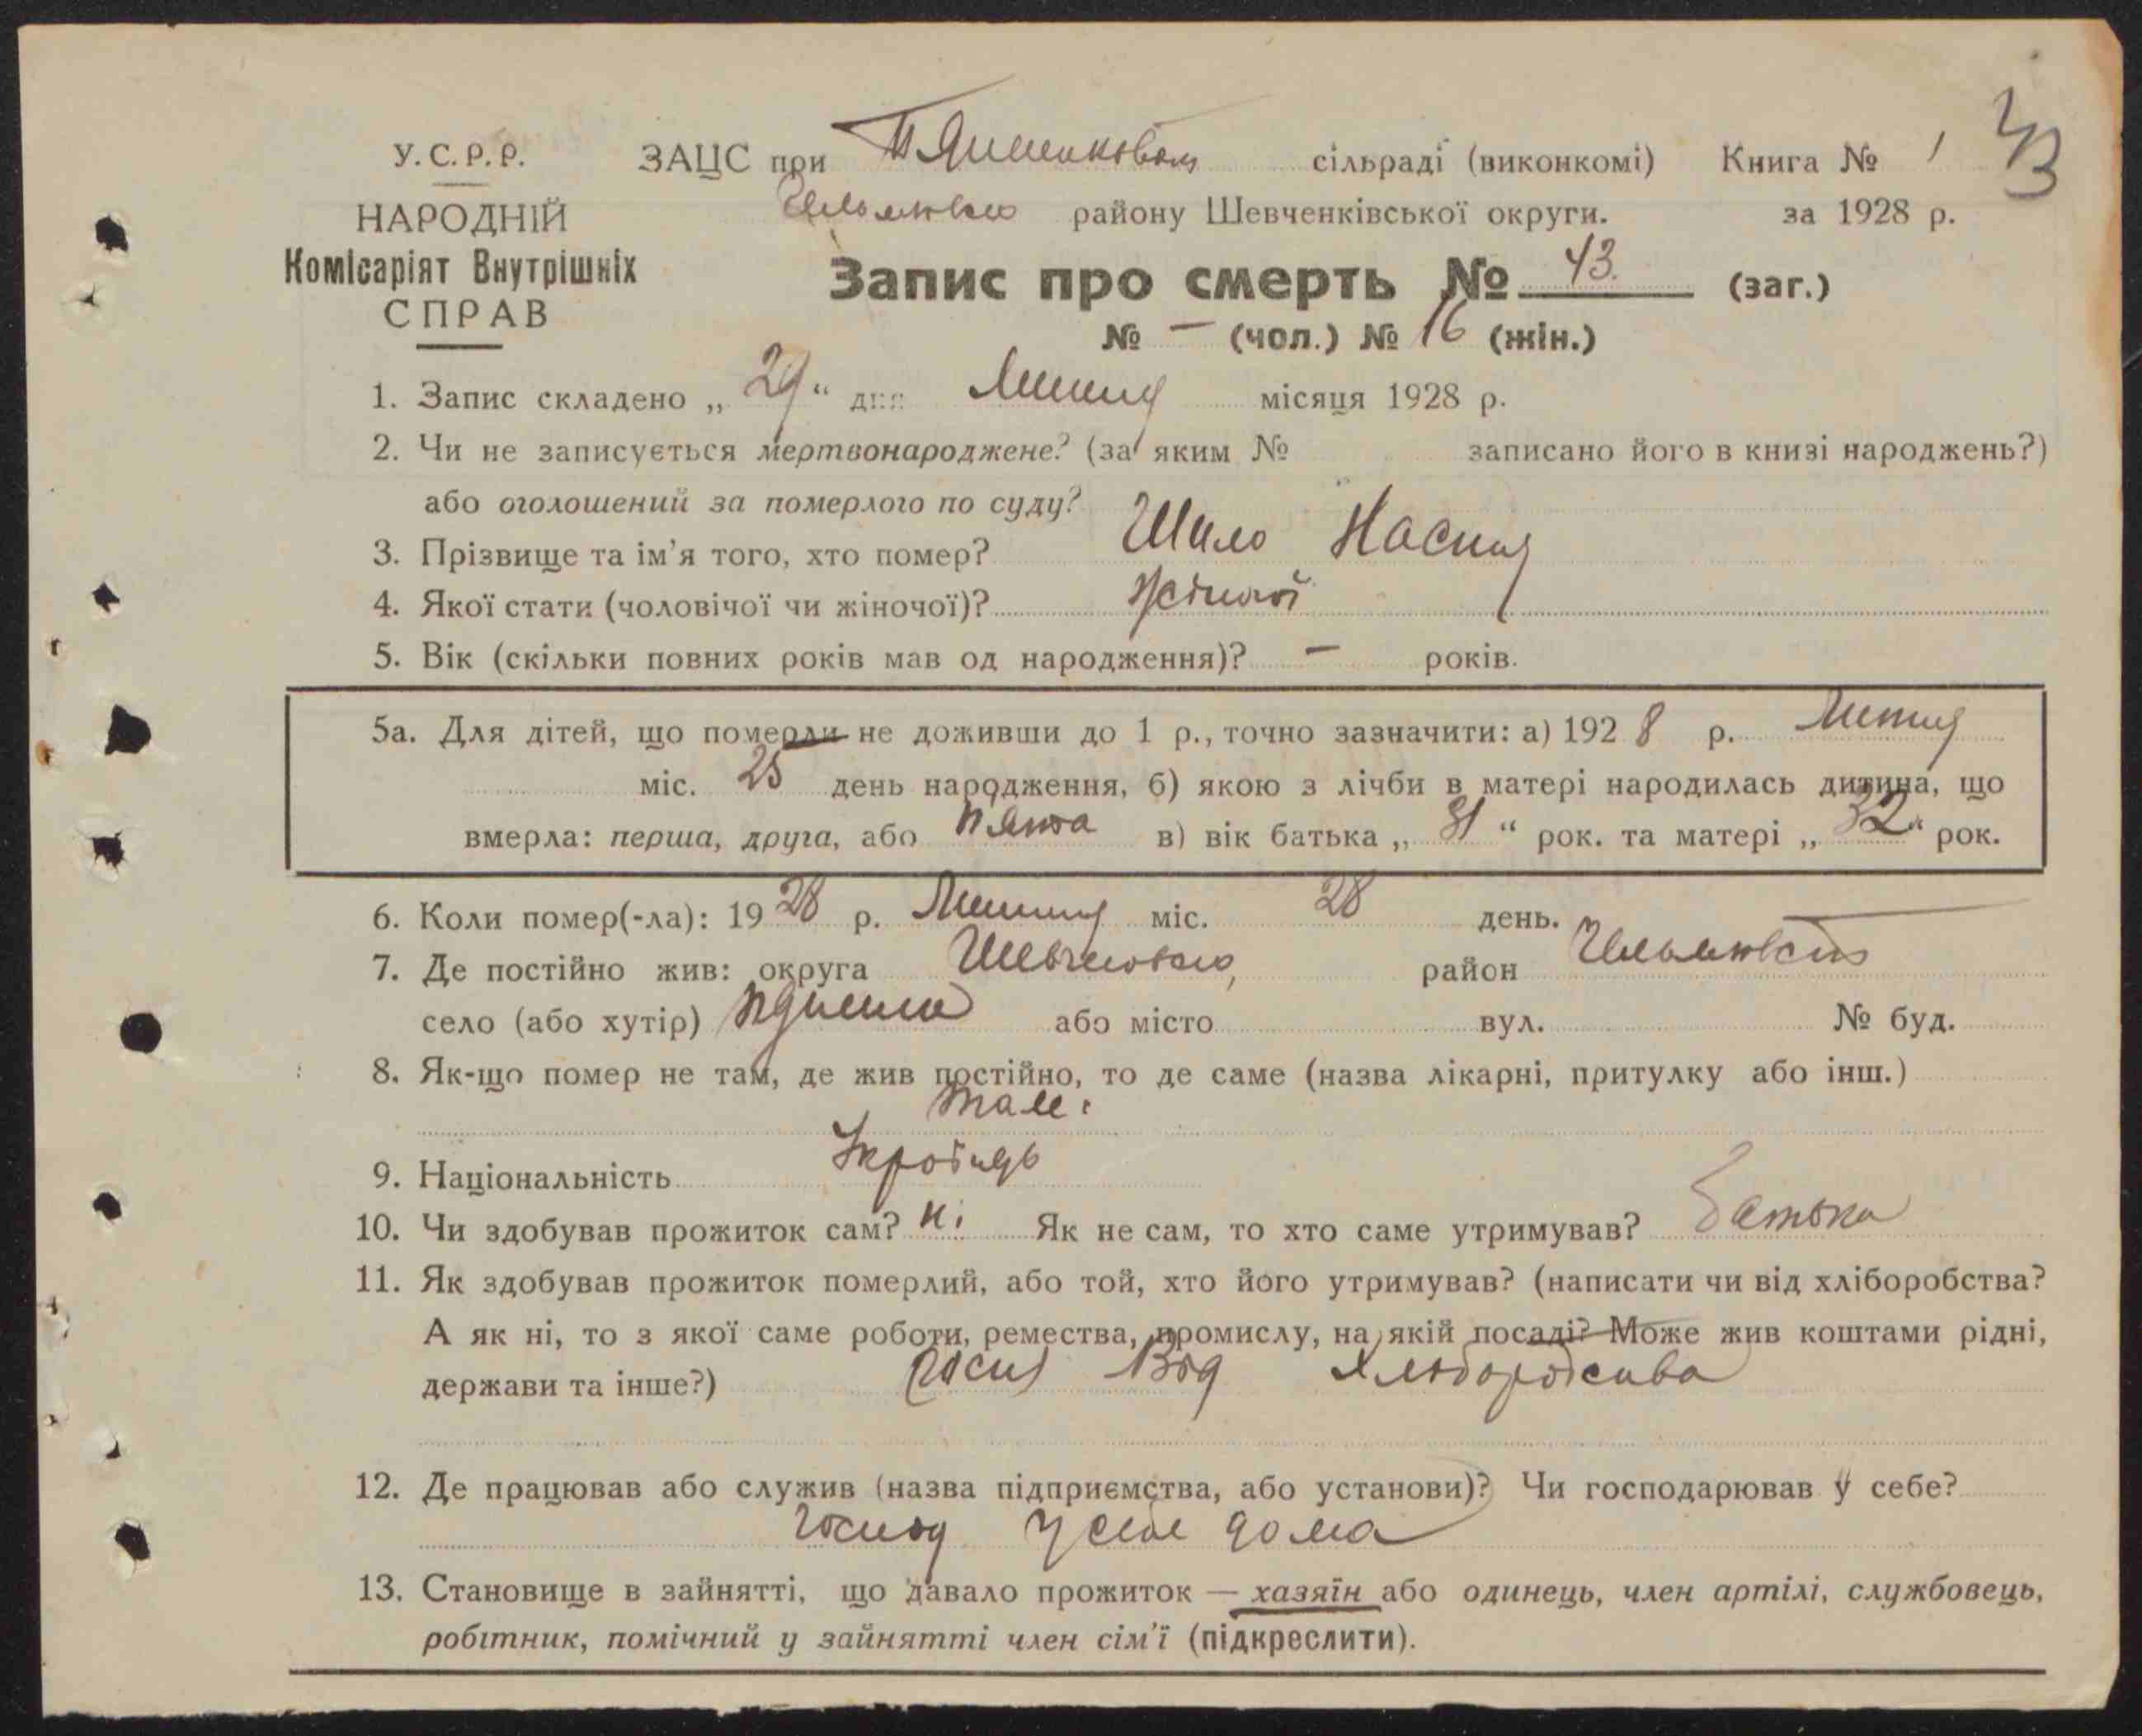 У.С.Р.Р. ЗАЦС при сільраді (виконкомі) Книга № 1
43
НАРОДНІЙ району Шевченківської округи. за 1928 р.
Комісаріят Внутрішніх
СПРАВ
Запис про смерть № 43. (заг.)
№ — (чол.) № 16 (жін.)
1. Запис складено „29“ дня Липня місяця 1928 р.
2. Чи не записується мертвонароджене? (за яким № записано його в книзі народжень?)
або оголошений за померлого по суду?
3. Прізвище та ім'я того, хто помер? Шило Настя
4. Якої стати (чоловічої чи жіночої)? Жіночої
5. Вік (скільки повних років мав од народження)? — років.
5а. Для дітей, що померли не доживши до 1 р., точно зазначити: а) 1928 р. Липня
міс. 25 день народження, б) якою з лічби в матері народилась дитина, що
вмерла: перша, друга, або п'ята в) вік батька „31“ рок. та матері „32“ рок.
6. Коли помер(-ла): 1928 р. Липня міс. 28 день.
7. Де постійно жив: округа район
село (або хутір) або місто вул. № буд.
8. Як-що помер не там, де жив постійно, то де саме (назва лікарні, притулку або інш.)
там.
9. Національність
10. Чи здобував прожиток сам? Ні Як не сам, то хто саме утримував? Батько
11. Як здобував прожиток померлий, або той, хто його утримував? (написати чи від хліборобства?
А як ні, то з якої саме роботи, ремества, промислу, на якій посаді? Може жив коштами рідні,
держави та інше?) Від
12. Де працював або служив (назва підприємства, або установи)? Чи господарював у себе?
Господ у себе дома
13. Становище в зайнятті, що давало прожиток — хазяїн або одинець, член артілі, службовець,
робітник, помічний у зайнятті член сім'ї (підкреслити).